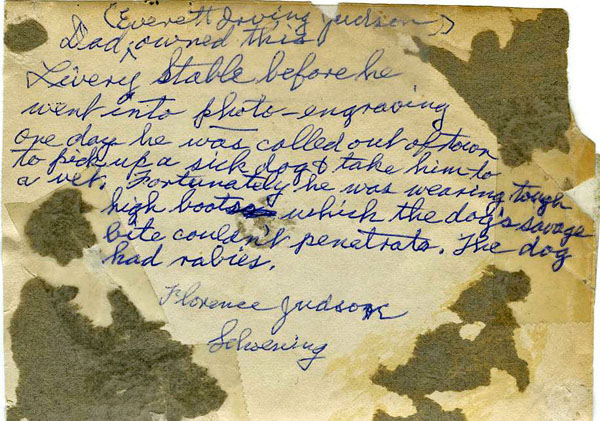 (Everett Irving Judson)
Dad, owned this
Livery Stable before he
went into photo-engraving
one day he was called out of town
to pick up a sick dog & take him to
a vet. Fortunately he was wearing tough
high boots which the dog's savage
bite couldn't penetrate. The dog
had rabies.
Florence Judson
Schoening